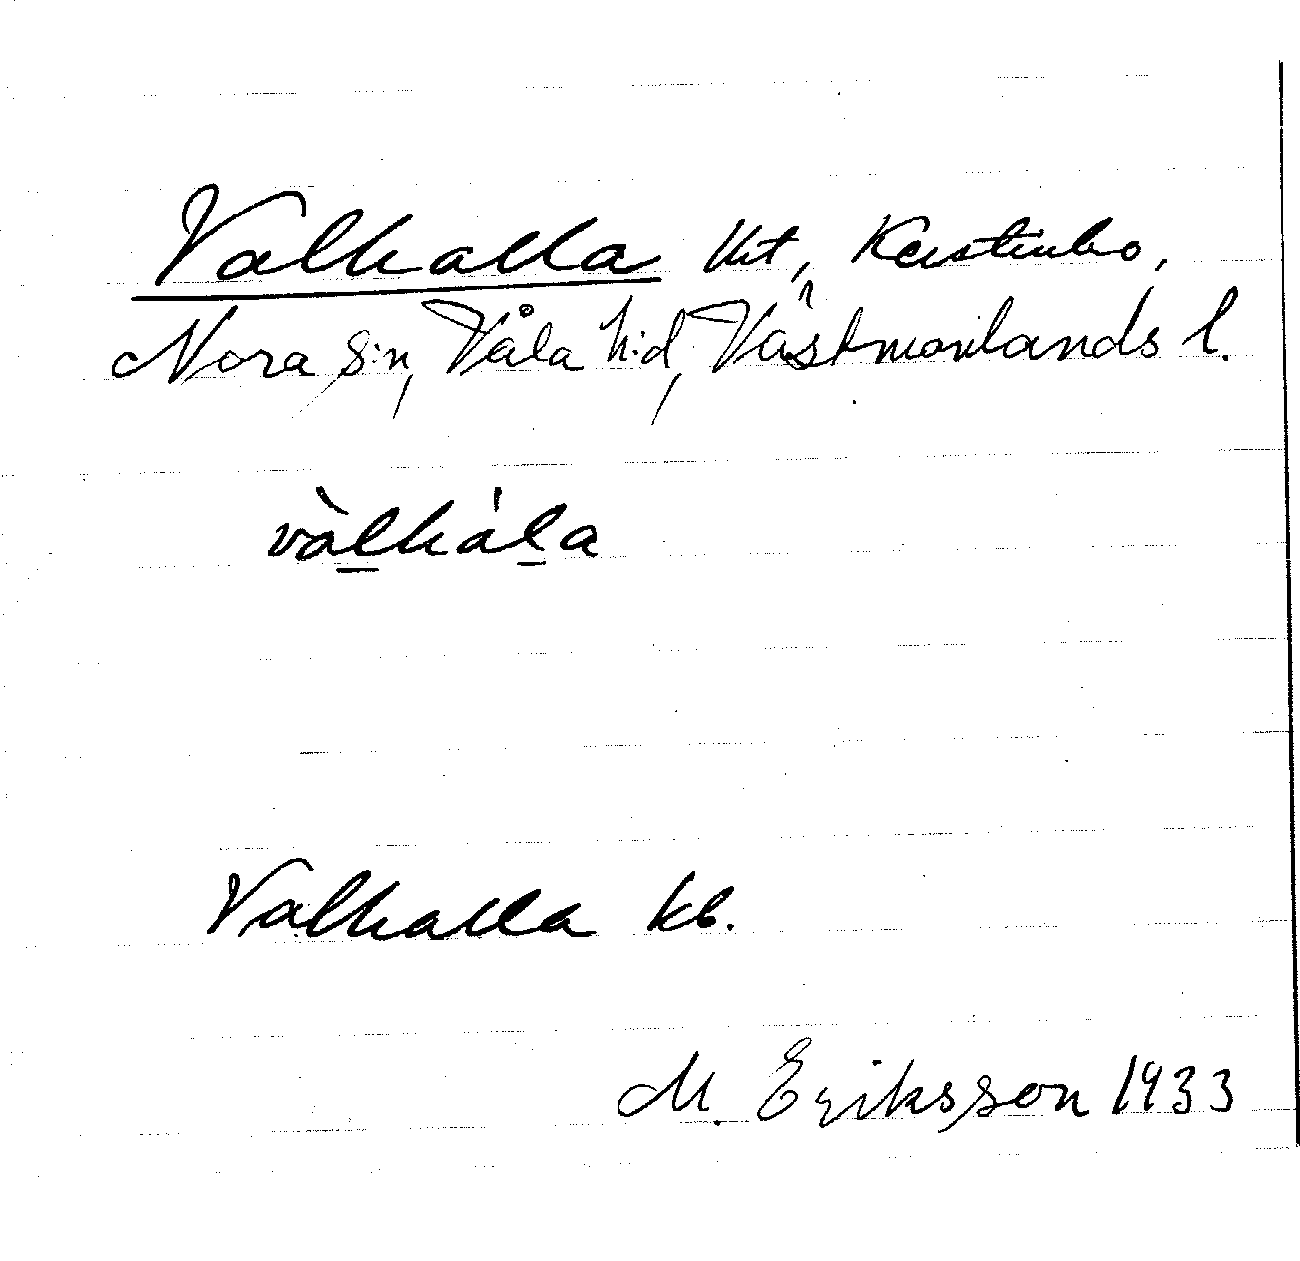 Valhalla lht, Kerstinbo,
Nora s:n, Våla h:d, Västmanlands l.
vàlhála
Valhalla kb.
M. Eriksson 1933